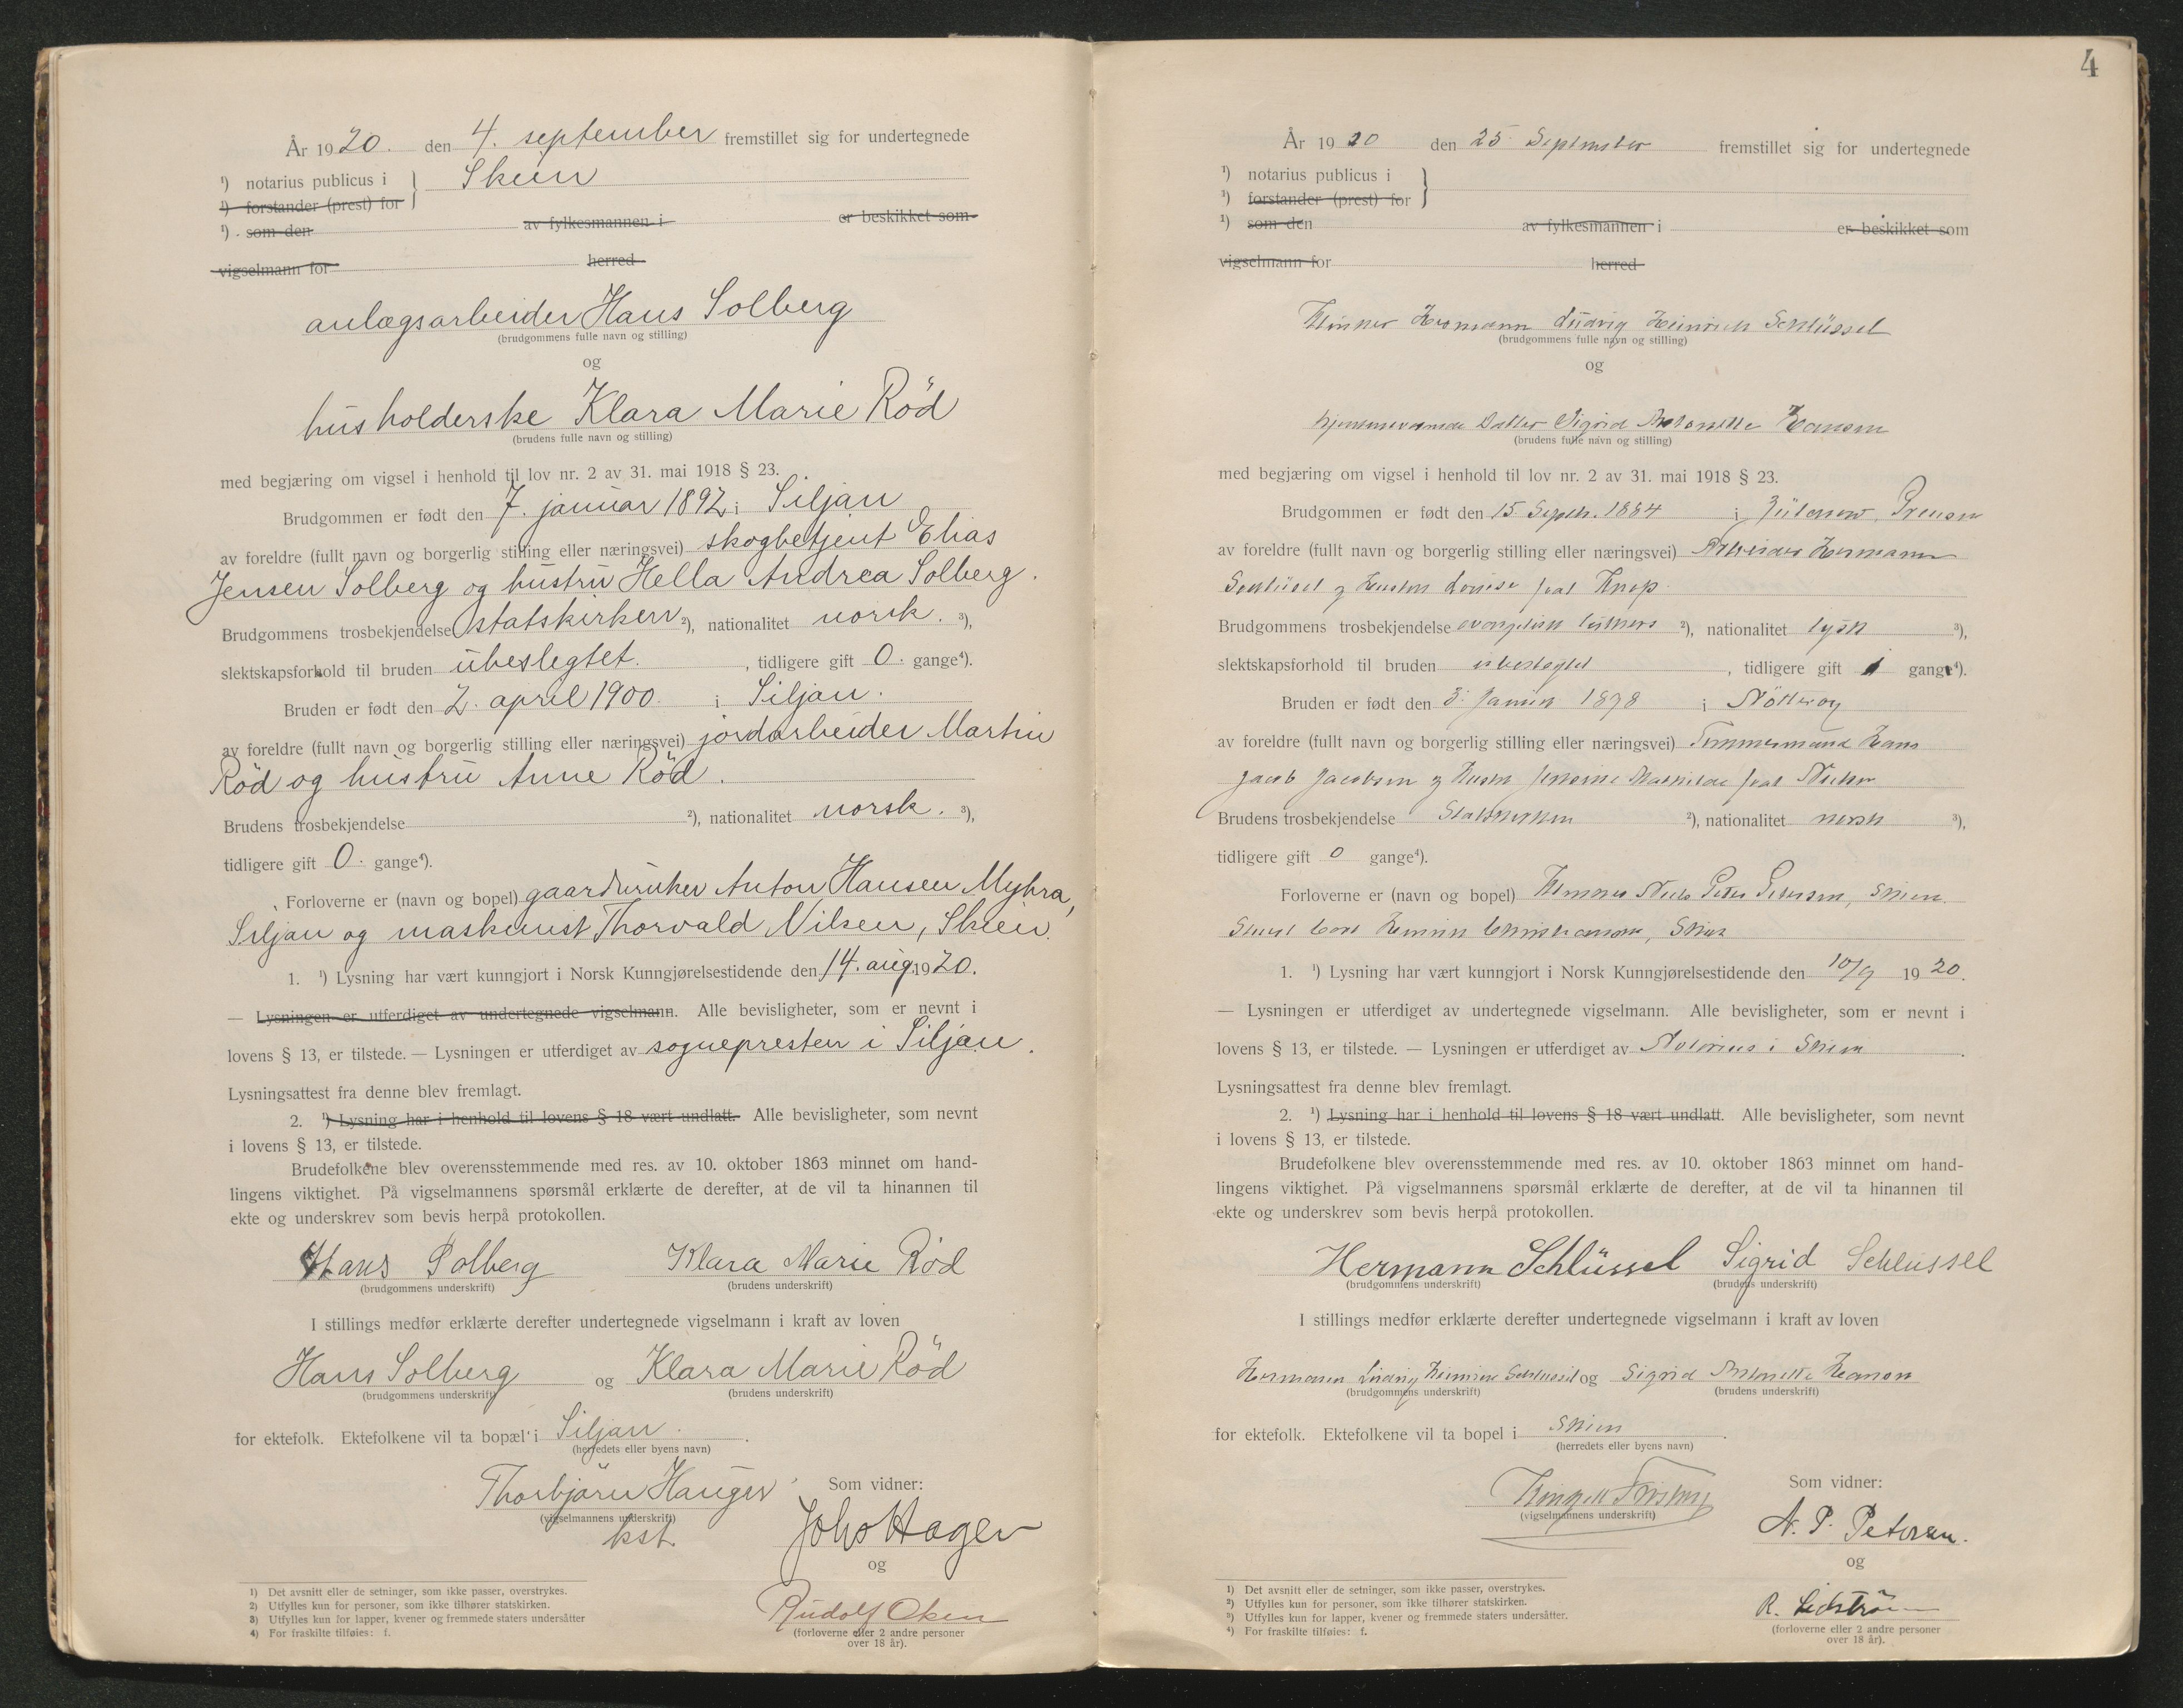 År 1920. den 4. september fremstillet sig for undertegnede
¹) notarius publicus i Skien
¹) forstander (prest) for
¹) som den av fylkesmannen i er beskikket som
vigselmann for herred
anlægsarbeider Hans Solberg
(brudgommens fulle navn og stilling)
og
husholderske Klara Marie Röd
(brudens fulle navn og stilling)
med begjæring om vigsel i henhold til lov nr. 2 av 31. mai 1918 § 23.
Brudgommen er født den 7. januar 1892 i Siljan
av foreldre (fullt navn og borgerlig stilling eller næringsvei) skogbetjent Elias
Jensen Solberg og hustru Hella Andrea Solberg.
Brudgommens trosbekjendelse statskirken ²), nationalitet norsk. ³),
slektskapsforhold til bruden ubeslegtet. , tidligere gift 0. gange⁴).
Bruden er født den 2. april 1900. i Siljan.
av foreldre (fullt navn og borgerlig stilling eller næringsvei) jordarbeider Martin
Röd og hustru Anne Röd.
Brudens trosbekjendelse ²), nationalitet norsk. ³),
tidligere gift 0. gange⁴).
Forloverne er (navn og bopel) gaardbruker Anton Hansen Myhra,
Siljan og maskinist Thorvald Nilsen, Skien.
1. ¹) Lysning har vært kunngjort i Norsk Kunngjørelsestidende den 14. aug. 1920.
— Lysningen er utferdiget av undertegnede vigselmann. Alle bevisligheter, som er nevnt i
lovens § 13, er tilstede. — Lysningen er utferdiget av sognepresten i Siljan.
Lysningsattest fra denne blev fremlagt.
2. ¹) Lysning har i henhold til lovens § 18 vært undlatt. Alle bevisligheter, som nevnt
i lovens § 13, er tilstede.
Brudefolkene blev overensstemmende med res. av 10. oktober 1863 minnet om hand-
lingens viktighet. På vigselmannens spørsmål erklærte de derefter, at de vil ta hinannen til
ekte og underskrev som bevis herpå protokollen.
Hans Solberg Klara Marie Rød
(brudgommens underskrift) (brudens underskrift)
I stillings medfør erklærte derefter undertegnede vigselmann i kraft av loven
Hans Solberg og Klara Marie Röd
(brudgommens underskrift) (brudens underskrift)
for ektefolk. Ektefolkene vil ta bopæl i Siljan.
(herredets eller byens navn)
Thorbjörn Hauger Som vidner:
(vigselmannens underskrift)
kst. Johs Hagen
og
Rudolf Olsen
(forloverne eller 2 andre personer
over 18 år).
1) Det avsnitt eller de setninger, som ikke passer, overstrykes.
2) Utfylles kun for personer, som ikke tilhører statskirken.
3) Utfylles kun for lapper, kvener og fremmede staters undersåtter
4) For fraskilte tilføies: f.
4
År 1920 den 25 September fremstillet sig for undertegnede
¹) notarius publicus i
¹) forstander (prest) for
¹) som den av fylkesmannen i er beskikket som
vigselmann for herred
Hermann Ludvig Heinrich Schlüssel
(brudgommens fulle navn og stilling)
og
hjemmeværende Datter Sigrid Antonette Hansen
(brudens fulle navn og stilling)
med begjæring om vigsel i henhold til lov nr. 2 av 31. mai 1918 § 23.
Brudgommen er født den 15 Septb. 1884 i Preusen
av foreldre (fullt navn og borgerlig stilling eller næringsvei) Arbeider Hermann
Schlüssel og Hustru Louise født Knop
Brudgommens trosbekjendelse evangelisk luthersk ²), nationalitet tysk ³),
slektskapsforhold til bruden ubeslegtet , tidligere gift 1 gang⁴).
Bruden er født den 3. Januar 1898 i Nötterøy
av foreldre (fullt navn og borgerlig stilling eller næringsvei) Tømmermand Hans
Jacob Jacobsen og Hustru Mathilde født Nielsen
Brudens trosbekjendelse Statskirken ²), nationalitet norsk ³),
tidligere gift 0 gange⁴).
Forloverne er (navn og bopel) Niels Peter Petersen, Skien.
Carl Christiansen, Skien
1. ¹) Lysning har vært kunngjort i Norsk Kunngjørelsestidende den 10/9 1920.
— Lysningen er utferdiget av undertegnede vigselmann. Alle bevisligheter, som er nevnt i
lovens § 13, er tilstede. — Lysningen er utferdiget av Notarius i Skien.
Lysningsattest fra denne blev fremlagt.
2. ¹) Lysning har i henhold til lovens § 18 vært undlatt. Alle bevisligheter, som nevnt
i lovens § 13, er tilstede.
Brudefolkene blev overensstemmende med res. av 10. oktober 1863 minnet om hand-
lingens viktighet. På vigselmannens spørsmål erklærte de derefter, at de vil ta hinannen til
ekte og underskrev som bevis herpå protokollen.
Hermann Schlüssel Sigrid Schlüssel
(brudgommens underskrift) (brudens underskrift)
I stillings medfør erklærte derefter undertegnede vigselmann i kraft av loven
Hermann Ludvig Heinrich Schlüssel og Sigrid Antonette Hansen
(brudgommens underskrift) (brudens underskrift)
for ektefolk. Ektefolkene vil ta bopel i Skien.
(herredets eller byens navn)
Som vidner:
(vigselmannens underskrift)
N. P. Petersen.
og
R. Lidström
(forloverne eller 2 andre personer
over 18 år).
1) Det avsnitt eller de setninger, som ikke passer, overstrykes.
2) Utfylles kun for personer, som ikke tilhører statskirken.
3) Utfylles kun for lapper, kvener og fremmede staters undersåtter.
4) For fraskilte tilføies: f.